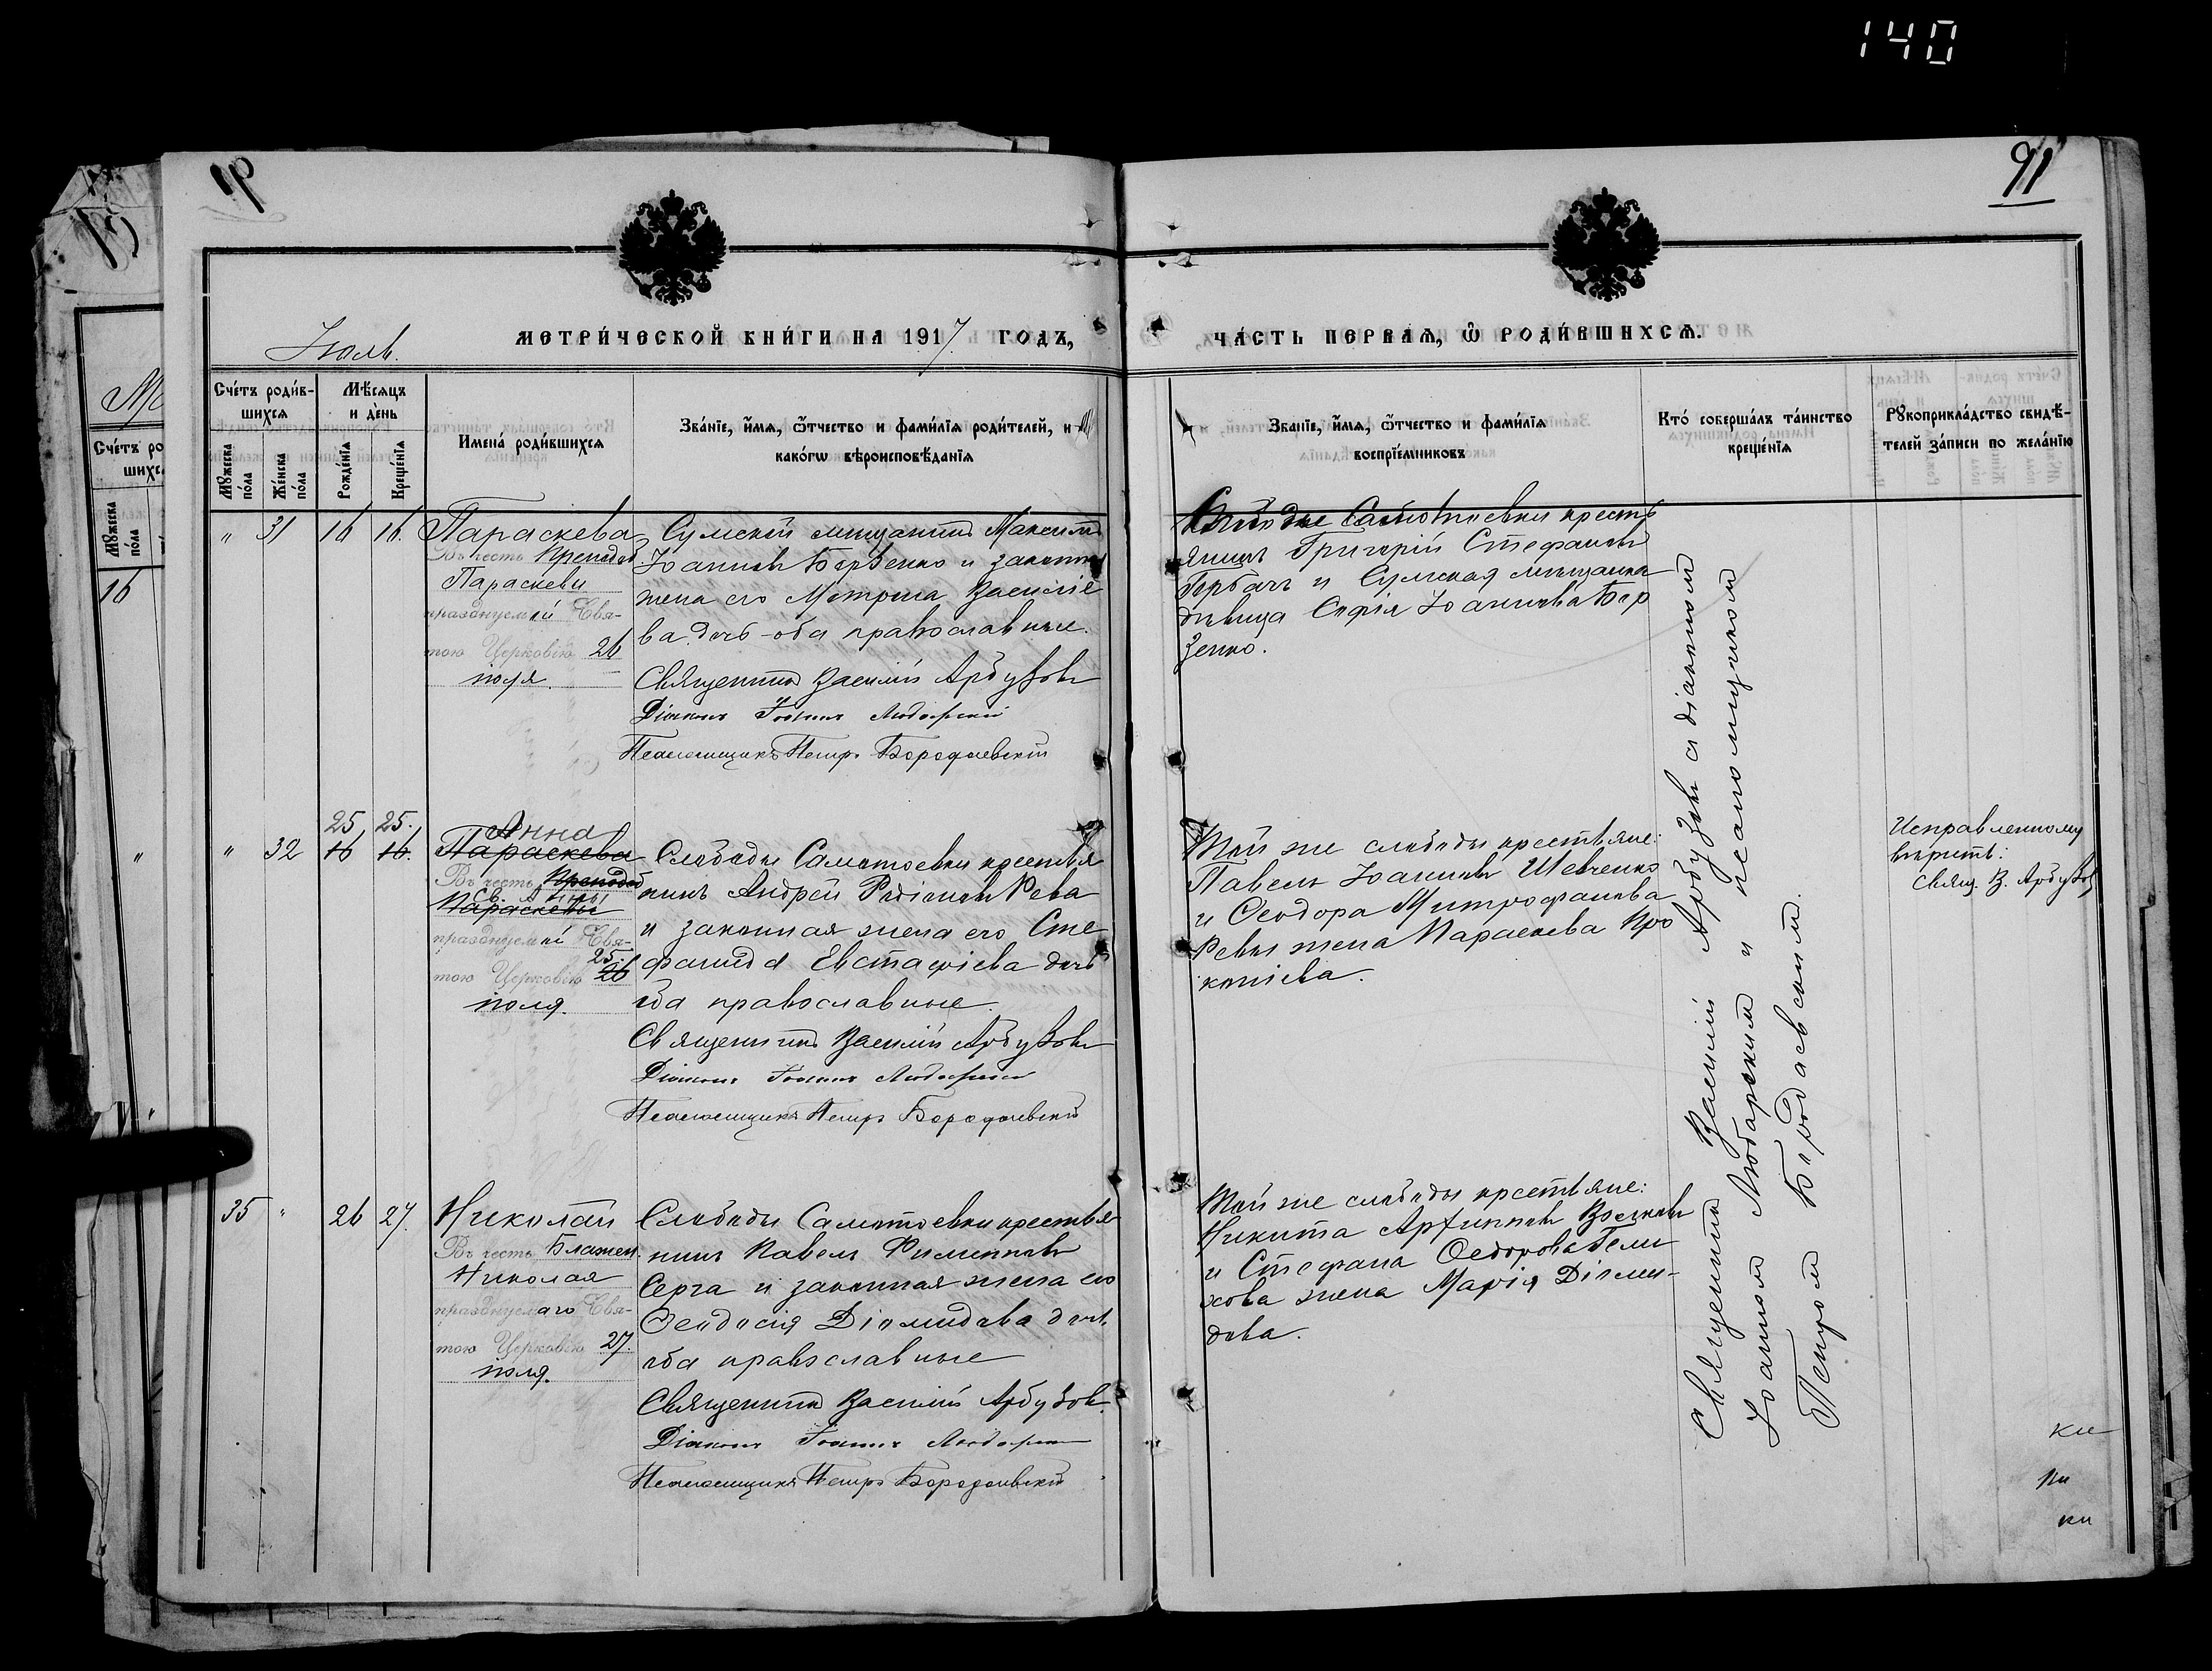 140
91
Іюль.
МЕТРИ́ЧЕСКОЙ КНИ́ГИ НА 1917 ГОДЪ,
ЧА́СТЬ ПЕРВАѦ, Ѡ҆ РОДИ́ВШИХСѦ.
Сче́тъ роди́в-
шихсѧ
Мꙋжеска по́ла
Же́нска по́ла
Мѣ́сѧцъ
и де́нь
Рожде́нїѧ
Креще́нїѧ
Имена̀ роди́вшихсѧ
Зва́нїе, и҆́мѧ, ѻ҆́тчество и фами́лїѧ роди́телей, и
како́гѡ вѣроисповѣ́данїѧ
Зва́нїе, и҆́мѧ, ѻ҆́тчество и фами́лїѧ
воспрїе́мниковъ
Кто̀ соверша́лъ та́инство
креще́нїѧ
Рꙋкоприкла́дство свидѣ́-
телей за́писи по жела́нїю
" 31 16 16. Параскева
Въ честь Преподоб.
Параскевы
празднуемой Свя-
тою Церковію 26
іюля.
Сумскій мѣщанинъ Максимъ
Іоанновъ Борзенко и законная
жена его Матрона Василіе
ва дочь - оба православные.
Священникъ Василій Арбузовъ
Діаконъ Іоаннъ Любарскій
Псаломщикъ Петръ Бородаевскій
Слободы Самотоевки кресть
янинъ Григорій Стефановъ
Горбачъ и Сумская мѣщанка
дѣвица Софія Іоаннова Бор
зенко.
" 32
25 25.
16 16.
Анна
Параскева
Въ честь Преподоб
Св. Анны
Параскевы
празднуемой Свя-
25.
тою Церковію 26
іюля.
Слободы Самотоевки крестья
нинъ Андрей Родіоновъ Рева
и законная жена его Сте
фанида Евстафіева дочь
оба православные.
Священникъ Василій Арбузовъ
Діаконъ Іоаннъ Любарскій
Псаломщикъ Петръ Бородаевскій
Той же слободы крестьяне:
Павелъ Іоанновъ Шевченко
и Ѳеодора Митрофанова
Ревы жена Параскева Про
копіева.
Исправленному
вѣрить:
Свящ. В. Арбузовъ
35 " 26 27. Николай
Въ честь Блажен.
Николая
празднуемаго Свя-
тою Церковію 27.
іюля.
Слободы Самотоевки крестья
нинъ Павелъ Филипповъ
Серга и законная жена его
Ѳеодосія Діомидова дочь
оба православные
Священникъ Василій Арбузовъ.
Діаконъ Іоаннъ Любарскій
Псаломщикъ Петръ Бородаевскій
Той же слободы крестьяне:
Никита
и Стефана Ѳедорова
жена Марія Діоми-
дова.
Священникъ Василій Арбузовъ съ діакономъ
Іоанномъ Любарскимъ и псаломщикомъ
Петромъ Бородаевскимъ.
16